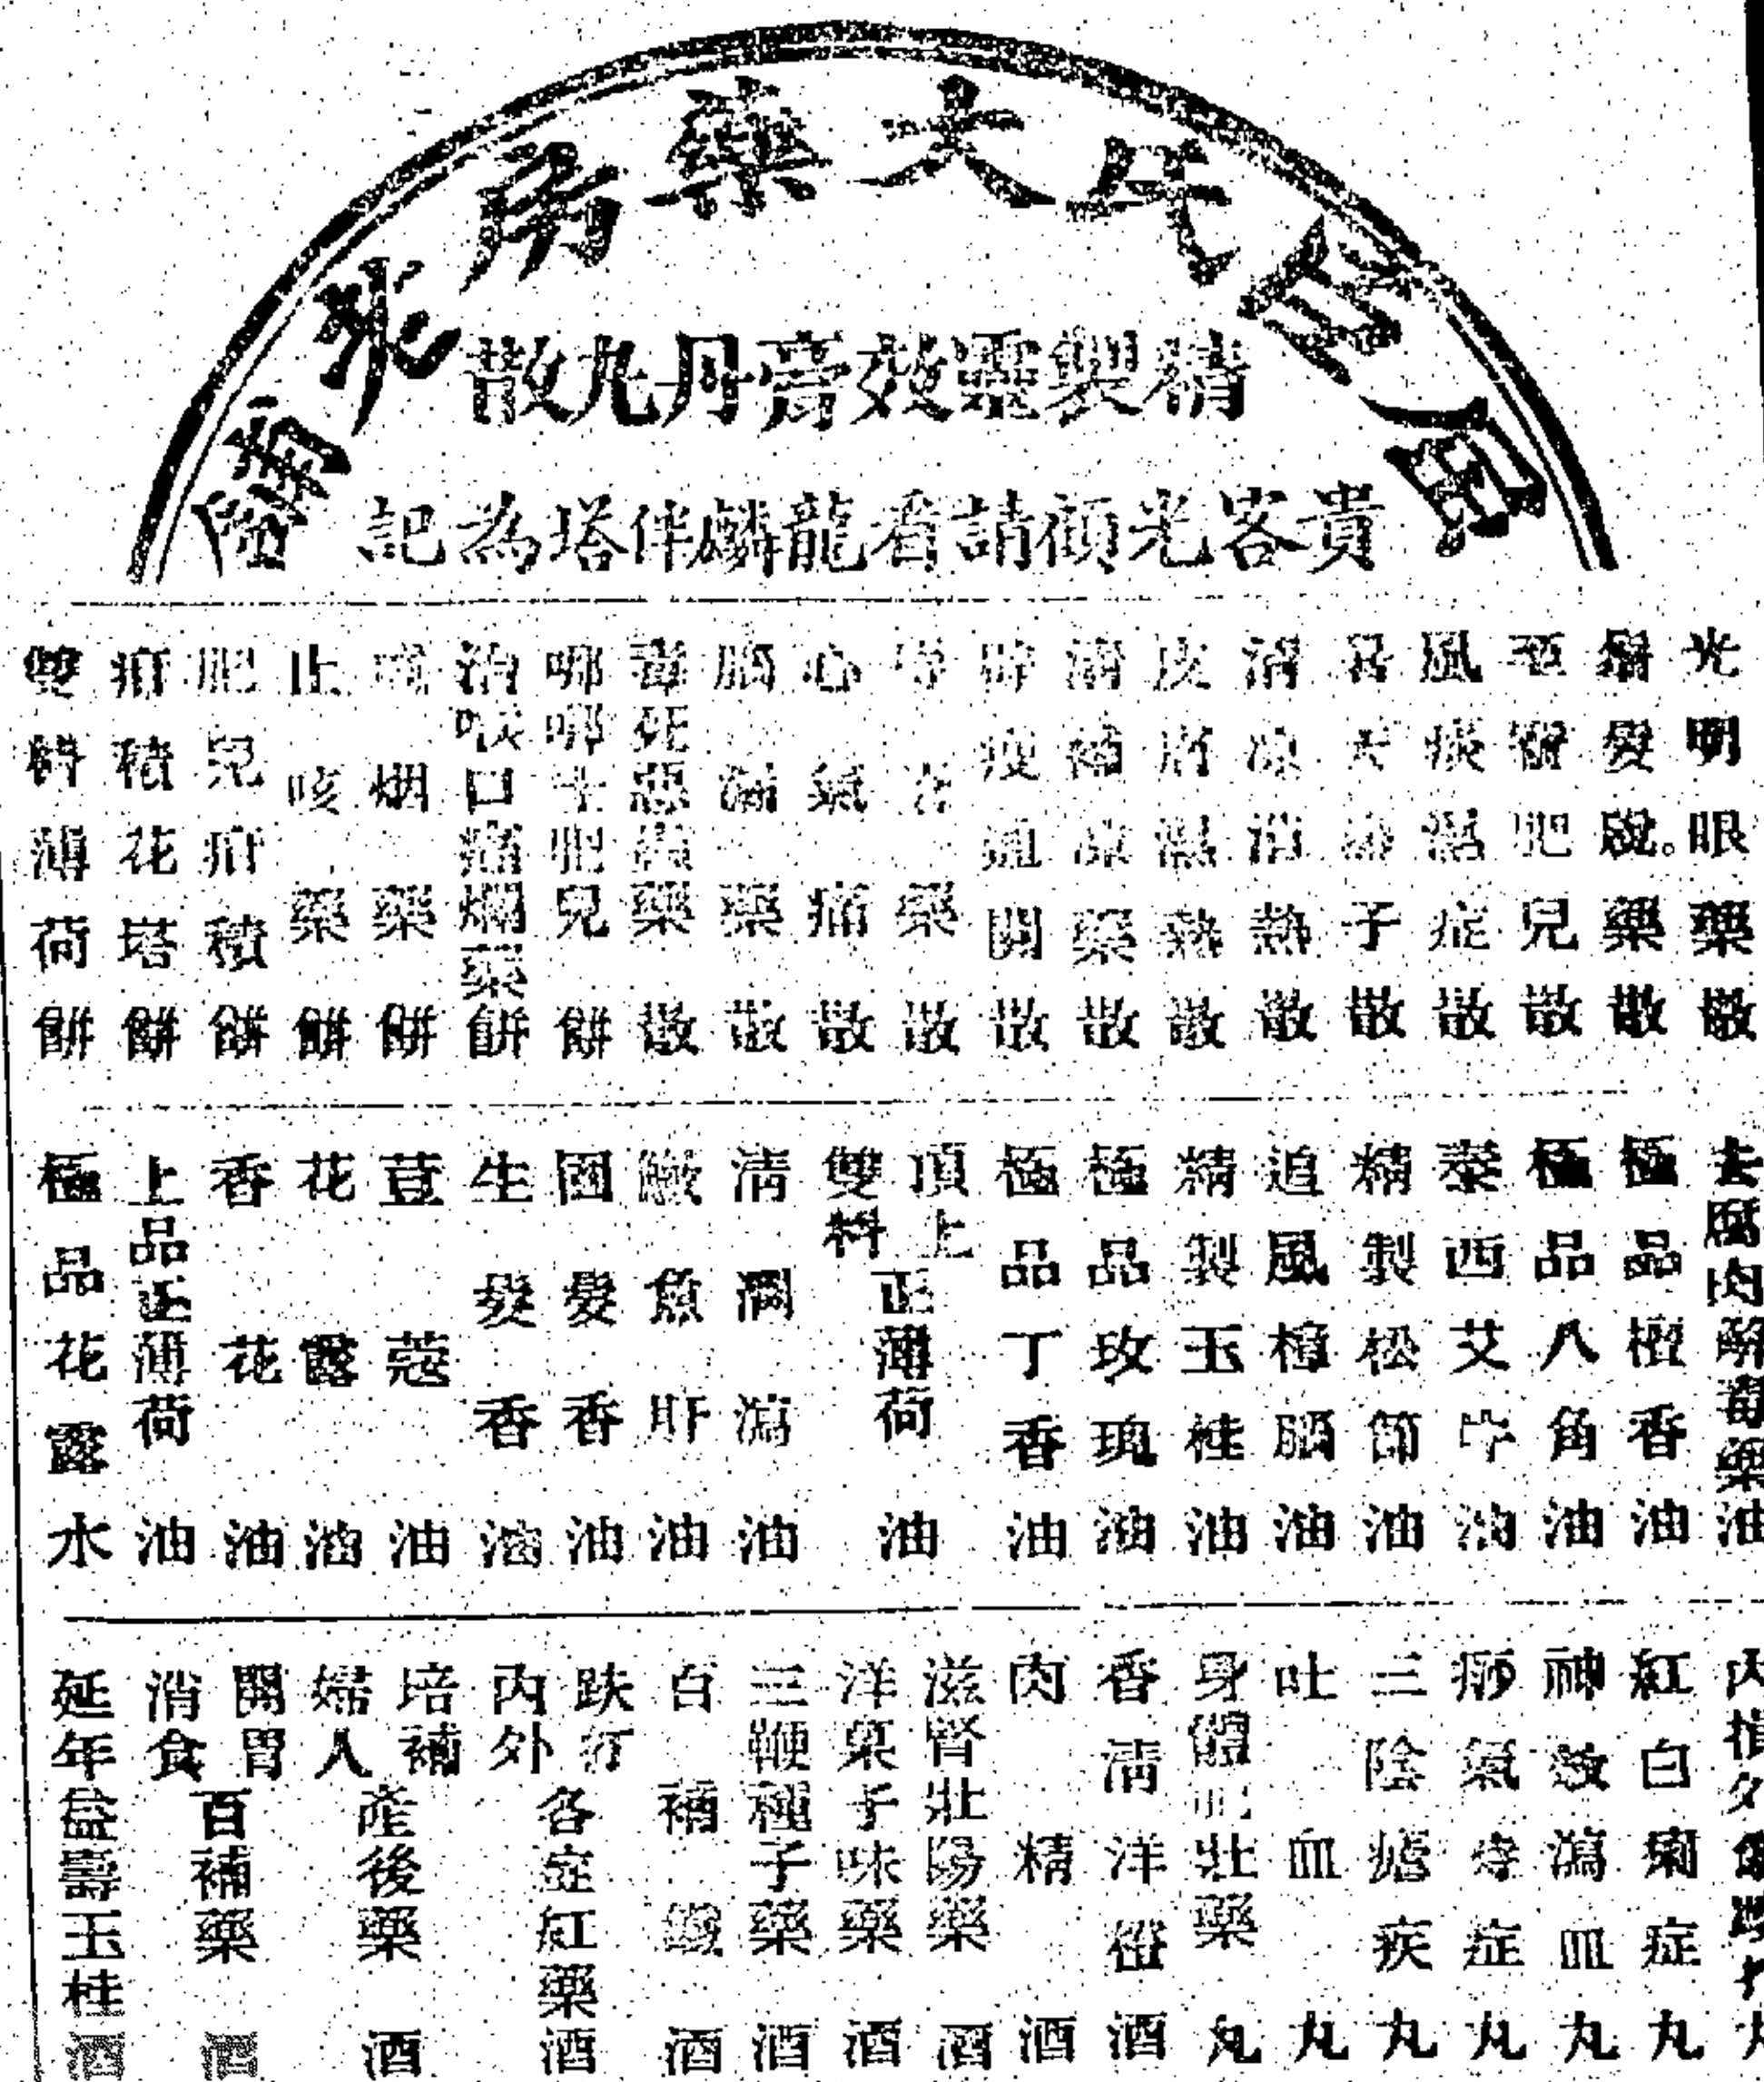 臣氏大藥房
精製靈效膏丹丸散
貴客光顧請看龍麟伴塔為記
光明眼藥散
鬚髮脫。藥散
肥兒散
風痰濕症散
子散
清涼消熱散
皮膚濕熱散
清補藥散
時疫通關散
藥散
心氣痛散
腦藥散
毒死惡藥散
哪哪士肥兒餅
治喉口痛爛藥餅
烟藥餅
止咳藥餅
肥兒疳積餅
疳積花塔餅
雙料薄荷餅
去腐肉解毒藥油
極品檀香油
極品八角油
泰西艾片油
精製松節油
追風樟腦油
精製玉桂油
極品玫瑰油
極品丁香油
頂上雙料正薄荷油
清潤瀉油
鰵魚肝油
國髮香油
生髮香油
荳蔻油
花露油
香花油
上品正薄荷油
極品花露水
紅白痢症丸
神效瀉血丸
痧氣症丸
三陰瘧疾丸
吐血丸
身體肥壯藥丸
香清洋橙酒
肉精酒
滋腎壯陽藥酒
洋菓子味藥酒
三鞭種子藥酒
百補酒
跌打內外各症紅藥酒
培補婦人產後藥酒
開胃消食百補藥酒
延年益壽玉桂酒